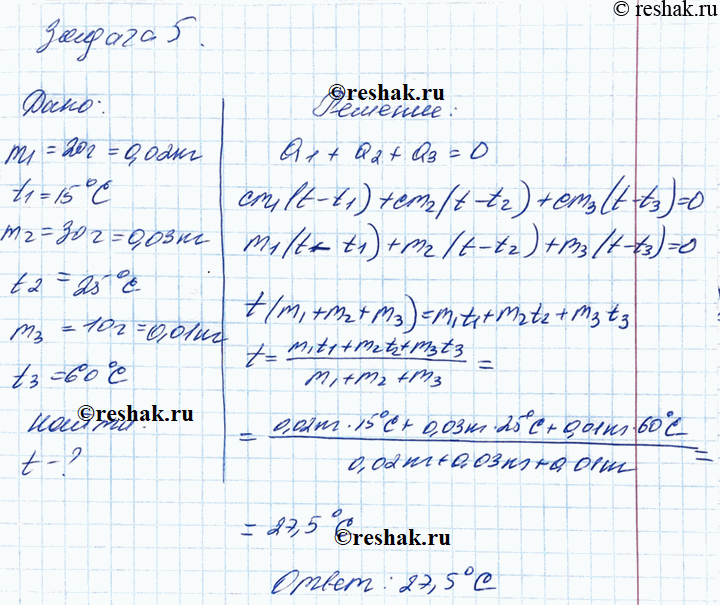 © reshak.ru
Задача 5.
©reshak.ru
Дано:
Решение:
m1 = 20г = 0,02кг
t1 = 15°C
m2 = 30г = 0,03кг
t2 = 25°C
m3 = 10г = 0,01кг
t3 = 60°C
©reshak.ru
Найти:
t - ?
Q1 + Q2 + Q3 = 0
cm1(t-t1) + cm2(t-t2) + cm3(t-t3) = 0
m1(t-t1) + m2(t-t2) + m3(t-t3) = 0
t(m1+m2+m3) = m1t1 + m2t2 + m3t3
t = (m1t1 + m2t2 + m3t3) / (m1 + m2 + m3) =
= (0,02кг · 15°C + 0,03кг · 25°C + 0,01кг · 60°C) / (0,02кг + 0,03кг + 0,01кг) =
= 27,5°C
©reshak.ru
Ответ: 27,5°C